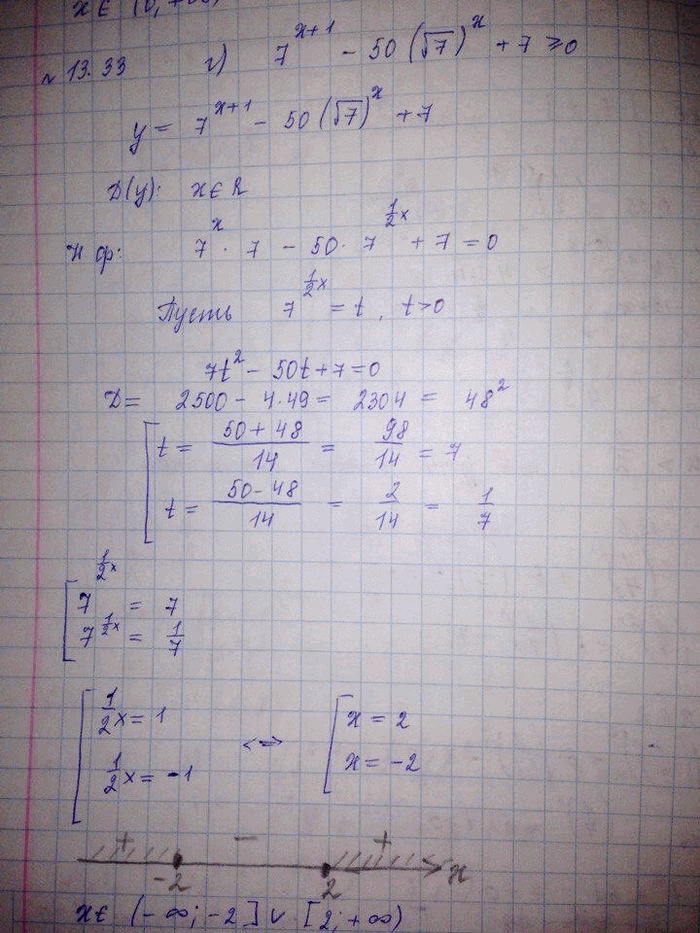 x ∈ (0; +∞)
№ 13.33 г) 7^(x+1) − 50(√7)^x + 7 ≥ 0
y = 7^(x+1) − 50(√7)^x + 7
D(y): x ∈ R
Н ф: 7^x · 7 − 50 · 7^(1/2 x) + 7 = 0
Пусть 7^(1/2 x) = t, t > 0
7t² − 50t + 7 = 0
D = 2500 − 4·49 = 2304 = 48²
[ t = (50 + 48)/14 = 98/14 = 7
t = (50 − 48)/14 = 2/14 = 1/7
[ 7^(1/2 x) = 7
7^(1/2 x) = 1/7
[ 1/2 x = 1 <=> [ x = 2
1/2 x = −1 x = −2
+ − +
−2 2 x
x ∈ (−∞; −2] ∪ [2; +∞)